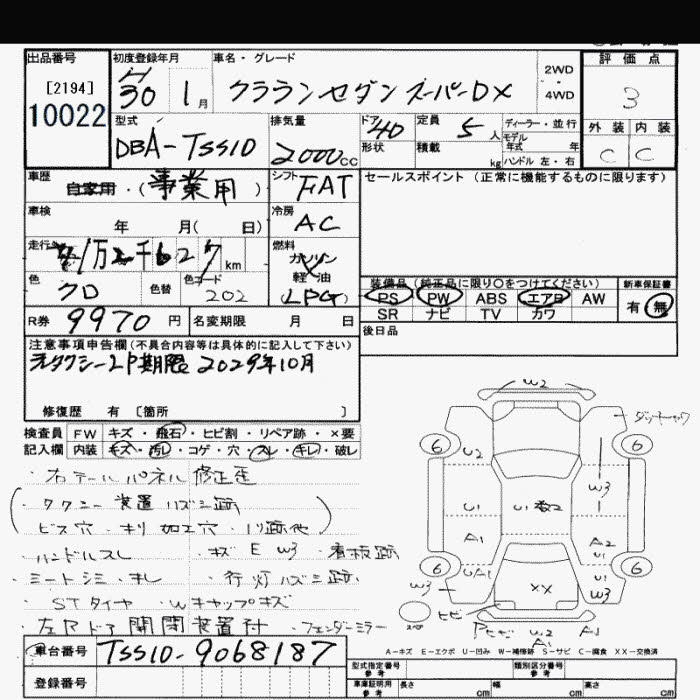 出品番号
[2194]
10022
初度登録年月
H30 1月
車名・グレード
クラウンセダン スーパーDX
2WD
・
4WD
評価点
3
外装 内装
C C
型式
DBA-TSS10
排気量
2000cc
ドア 4D
形状
定員 5人
積載 kg
ディーラー・並行
モデル
年式 年
ハンドル 左・右
車歴
自家用・(事業用)
シフト FAT
セールスポイント(正常に機能するものに限ります)
車検
年 月( 日)
冷房
AC
走行
km
燃料
ガソリン
軽油
(LPG)
色
クロ
色替
色コード
202
装備品(純正品に限り○をつけてください)
PS PW ABS エアB AW
SR ナビ TV カワ
新車保証書
有 無
R券 9970円
名変期限 月 日
後日品
注意事項申告欄(不具合内容等は具体的に記入して下さい)
元タクシー LP期限 2029年10月
修復歴 有 [箇所 ]
検査員 FW キズ・飛石・ヒビ割・リペア跡・×要
記入欄 内装 キズ・汚レ・コゲ・穴・スレ・キレ・破レ
・右テールパネル修正歪
・タクシー装置ハズシ跡
ビス穴・キリ加工穴・ノリ跡他
・ハンドルスレ
・キズ E W3 ・看板跡
・シートシミ・キレ
・行灯ハズシ跡
・STタイヤ・Wキャップキズ
・左リアドア開閉装置付
・フェンダーミラー
W2
6
6
U2
W3
U1
U1数2
A1
A2
U1
6
UA1
6
U1
W3
W3
XX
ヒビ
W2
A1
A1
A-キズ E-エクボ U-凹み W-補修跡 S-サビ C-腐食 XX-交換済
車台番号 TSS10-9068187
登録番号
型式指定番号
参考
類別区分番号
参考
車庫証明用
参考
長さ cm
幅 cm
高さ cm